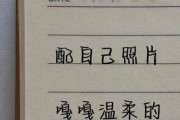 配自己照片
嘎嘎温柔的